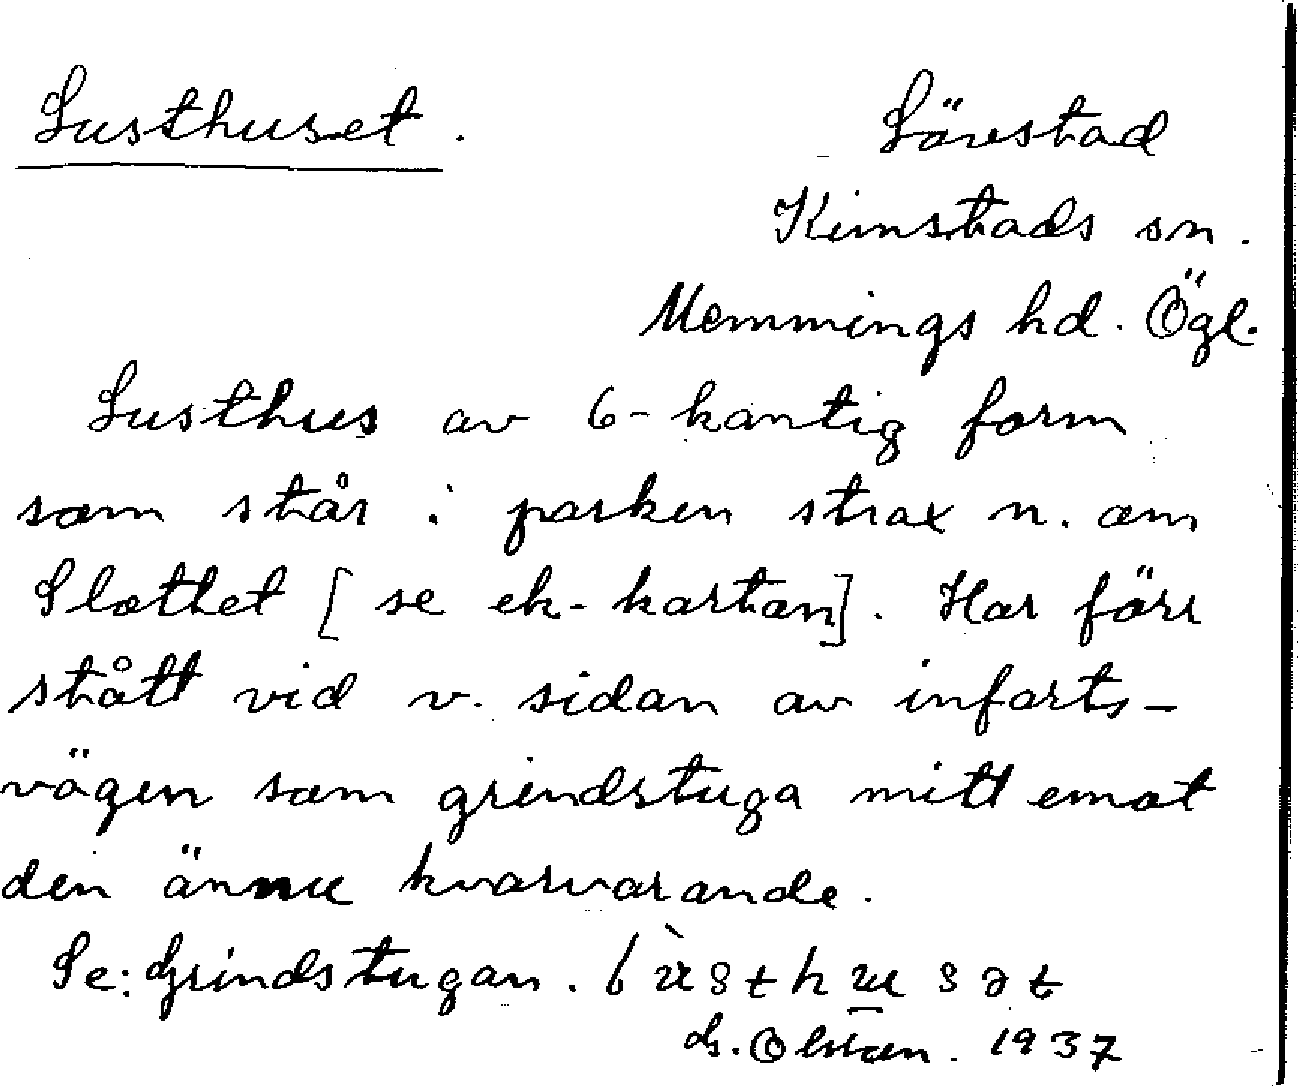 Lusthuset.
Lövestad
Kimstads sn.
Memmings hd. Ögl.
Lusthus av 6-kantig form
som står i parken strax n. om
Slottet [se ek-kartan]. Har förr
stått vid v. sidan av infarts-
vägen som grindstuga mitt emot
den ännu kvarvarande.
Se: Grindstugan.
G. Olsson. 1937